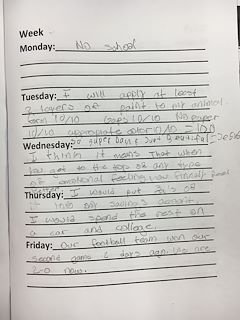 Week
Monday: No school
Tuesday: I will apply at least
3 layers of paint to my animal.
form 10/10 Gaps 10/10 No paper
10/10 appropriate color 10/10 =
Wednesday:
I think it means that when
you get to the top of any type
of emotional feeling you finally
Thursday: I would put 20% of
it into my savings account.
I would spend the rest on
a car and college.
Friday: Our football team won our
second game 6 days ago. We are
2-0 now.